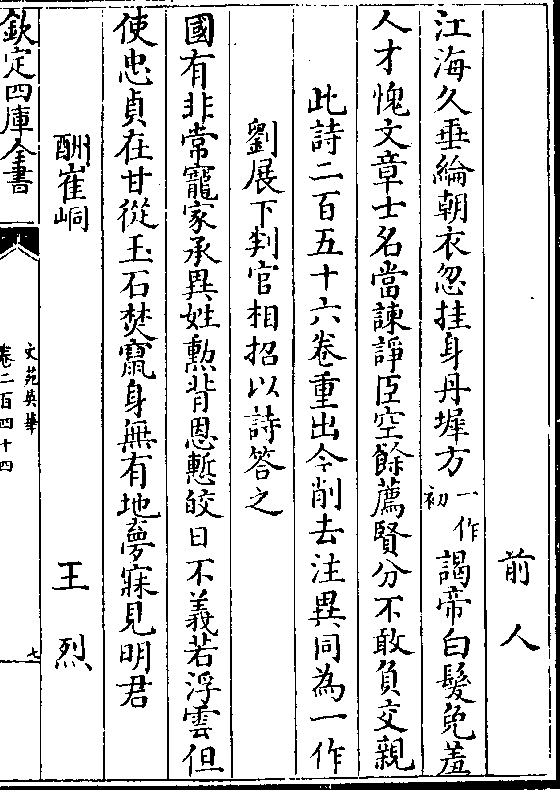 前人
江海久垂綸朝衣忽挂身丹墀方一作初謁帝白髮免羞
人才愧文章士名當諫諍臣空餘薦賢分不敢負交親
此詩二百五十六卷重出今削去注異同為一作
劉展下判官相招以詩答之
國有非常寵家承異姓勲背恩慙皎日不義若浮雲但
使忠貞在甘從玉石焚竄身無有地夢寐見明君
酬崔峒 王烈
欽定四庫全書
文苑英華
卷二百四十四
七